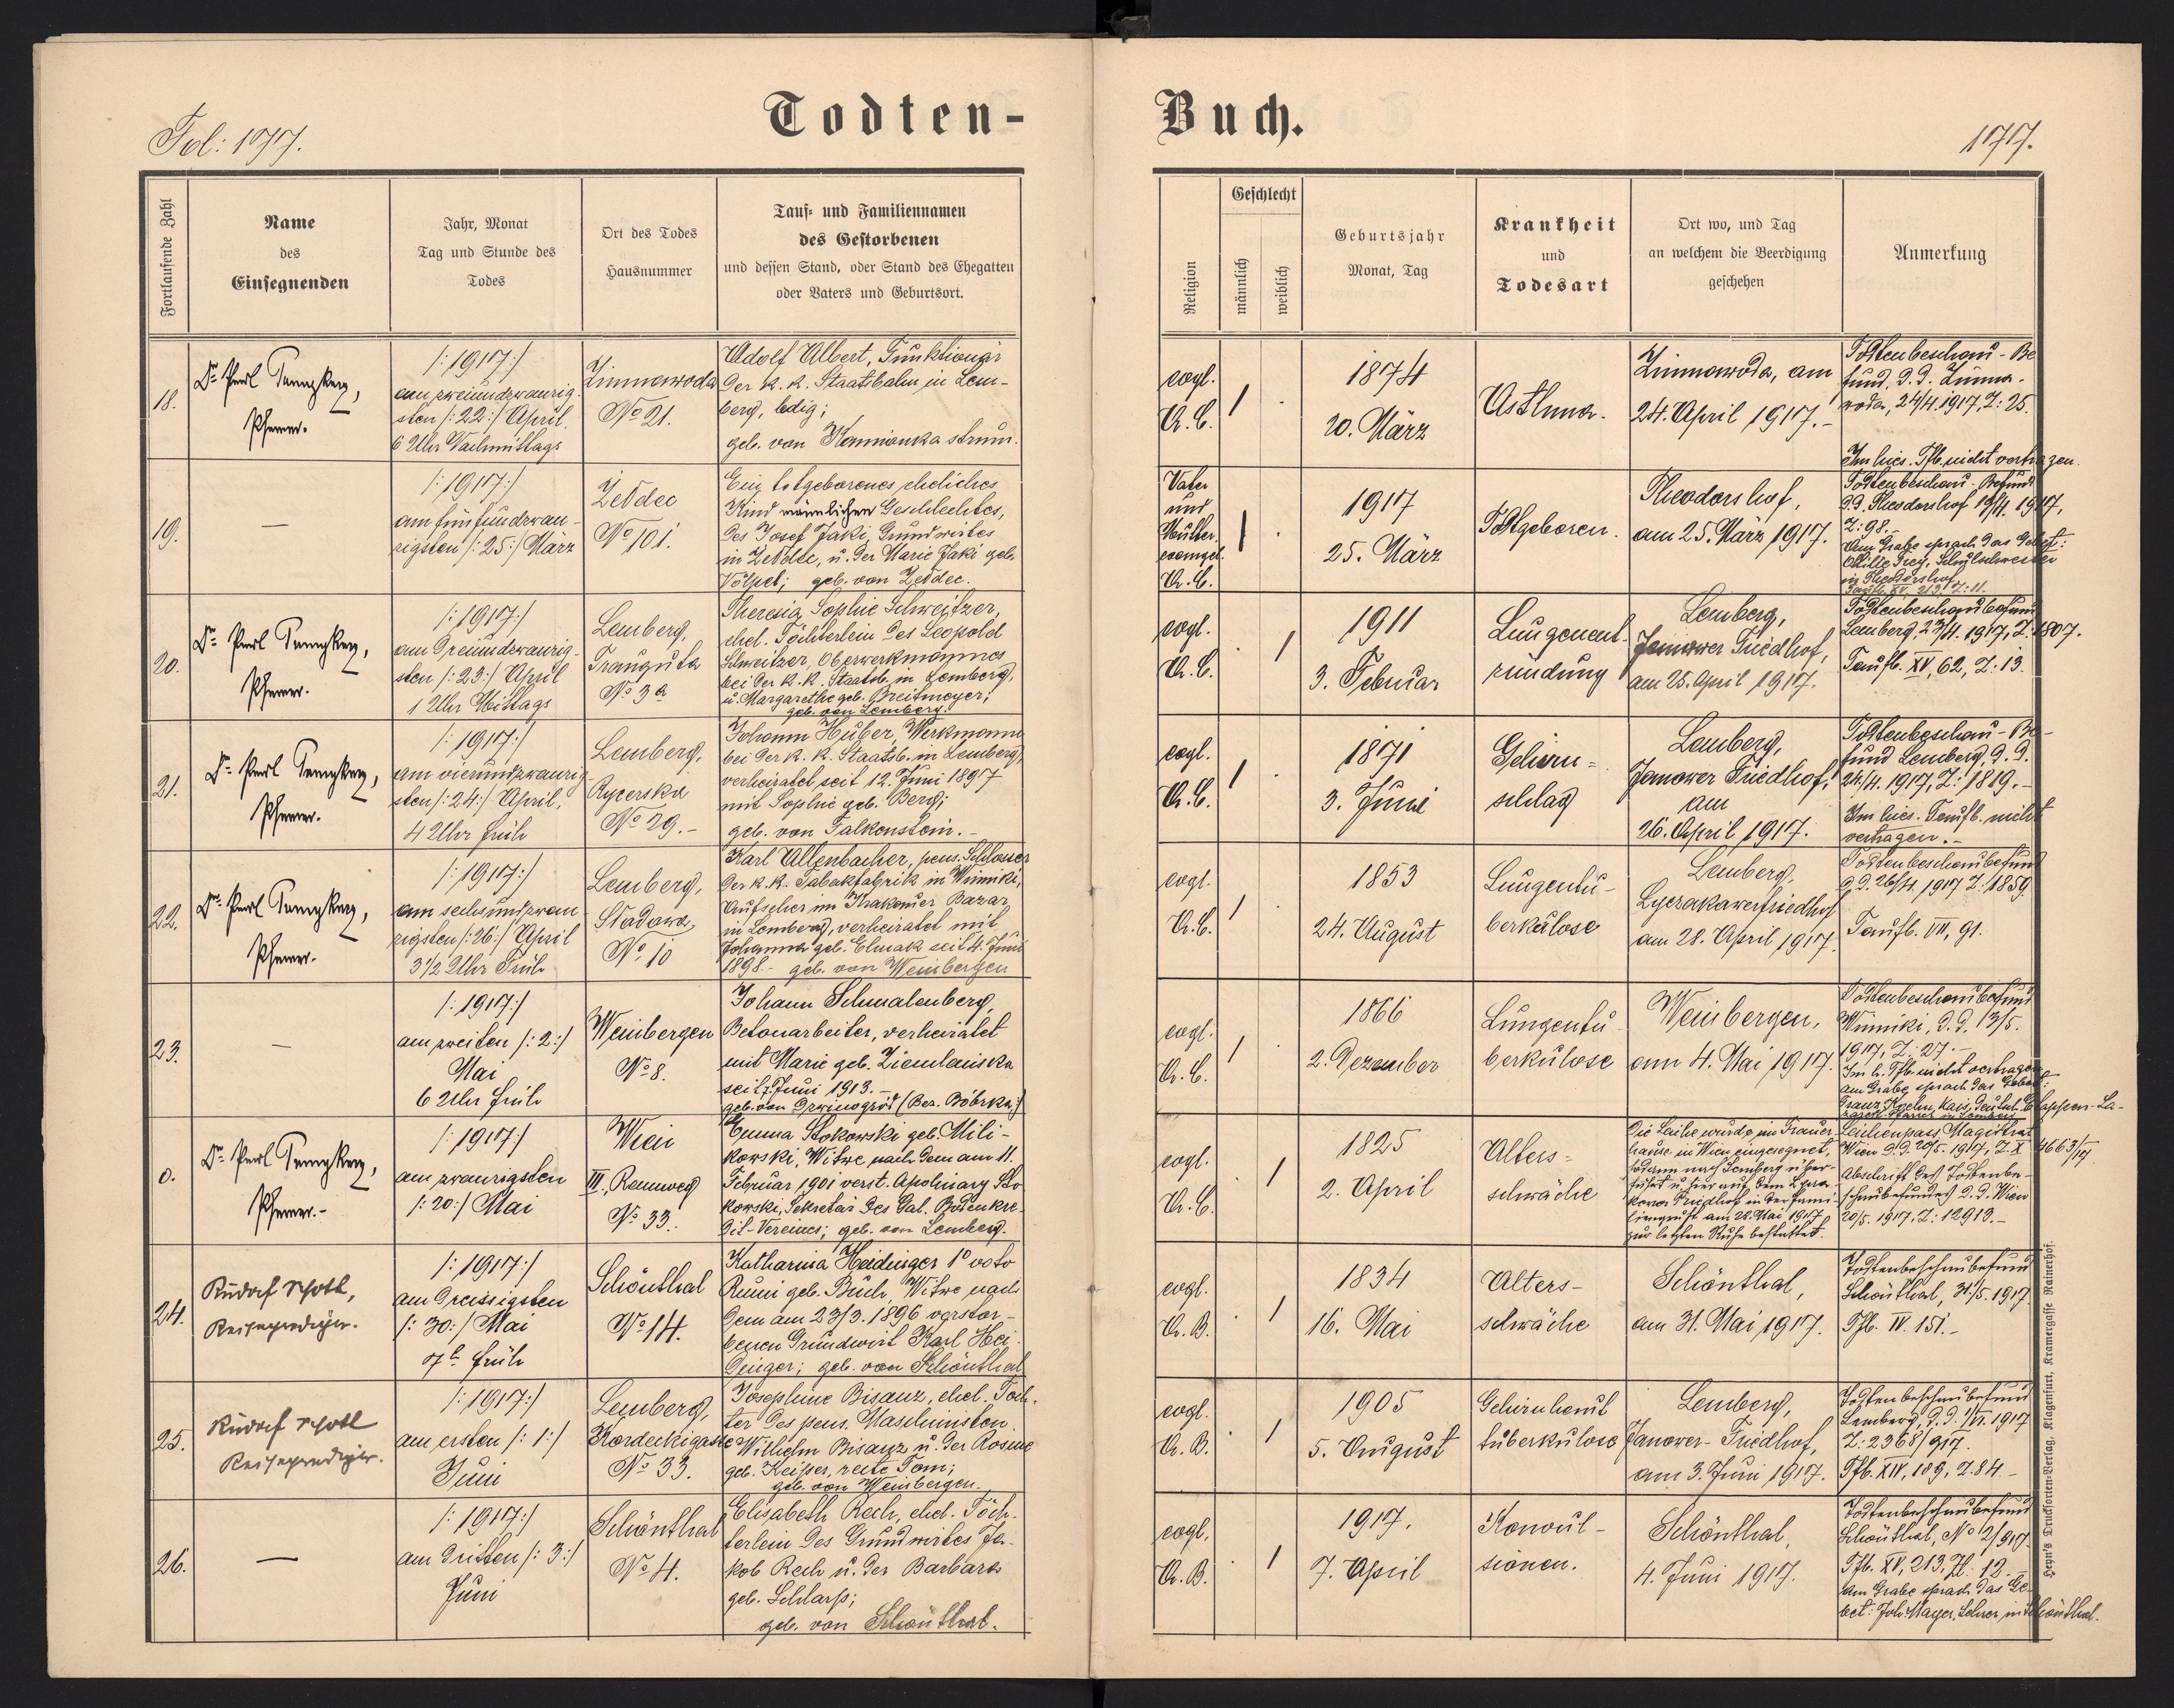 Fol: 177.
Todten-
Buch.
177.
Fortlaufende Zahl
Name
des
Einsegnenden
Jahr, Monat
Tag und Stunde des
Todes
Ort des Todes
Hausnummer
Tauf- und Familiennamen
des Gestorbenen
und dessen Stand, oder Stand des Ehegatten
oder Vaters und Geburtsort.
Religion
Geschlecht
männlich
weiblich
Geburtsjahr
Monat, Tag
Krankheit
und
Todesart
Ort wo, und Tag
an welchem die Beerdigung
geschehen
Anmerkung
18.
Pfarrer.
/:1917:/
am zweiundzwanzig-
sten /:22:/ April,
6 Uhr Nachmittags
Zimnawoda
No 21.
Adolf Albert, Funktionär
der k. k. Staatsbahn in Lem-
berg, ledig;
geb. von Kamionka strum.
evgl.
A. C.
/ .
1874
20. März
Asthma.
Zimnawoda, am
24. April 1917.-
Todtenbeschau-Be
fund, d. d. Zimna-
woda, 24/4. 1917, Z: 25.
Im hies. Tfb. nicht vertragen.
19.
—
/:1917:/
am fünfundzwan-
zigsten /:25:/ März
Zeddec
No 101.
Ein totgeborenes eheliches
Kind männlichen Geschlechtes,
des Josef Jaki, Grundwirtes
in Zeddec, u. der Marie Jaki geb.
Völpel; geb. von Zeddec.
Vater
und
Mutter
evangel.
A. C.
/ .
1917
25. März
Todtgeboren.
Theodorshof,
am 25. März 1917.
Todtenbeschau-Befund
d. d. Theodorshof 19/4. 1917,
Z: 98.-
Am Grabe sprach das Gebet:
Schulschwester
in Theodorshof
20.
Pfarrer.
/:1917:/
am dreiundzwanzig-
sten /:23:/ April
1 Uhr Mittags
Lemberg,
Trauguta
No 3a
Theresia Sophie Schweitzer,
ehel. Töchterlein des Leopold
Schweitzer, Oberwerkmannes
bei der k. k. Staatsb. in Lemberg,
u. Margarethe geb. Breitmeyer;
geb. von Lemberg.
evgl.
A. C.
. /
1911
3. Februar
Lungenent-
zündung
Lemberg,
Janower Friedhof,
am 25. April 1917.
Todtenbeschaubefund
Lemberg, 23/4. 1917, Z: 1807.
Taufb. XV, 62, Z. 13.
21.
Pfarrer.
/:1917:/
am vierundzwanzig-
sten /:24:/ April,
4 Uhr früh
Lemberg,
Rycerska
No 29.-
Johann Huber, Werkmann
bei der k. k. Staatsb. in Lemberg,
verheiratet seit 12. Juni 1897
mit Sophie geb. Berg;
geb. von Falkenstein.-
evgl.
A. C.
/ .
1871
3. Juni
Gehirn-
schlag
Lemberg,
Janower Friedhof,
am
26. April 1917.
Todtenbeschau-Be-
fund Lemberg, d. d.
24/4. 1917, Z: 1819.-
Im hies. Taufb. nicht
vertragen.-
22.
Pfarrer.
/:1917:/
am sechsundzwan
zigsten /:26:/ April
3 1/2 Uhr Früh
Lemberg,
Stadowa
No 10
Karl Allenbacher, pens. Schlosser
der k. k. Tabakfabrik in Winniki,
Aufseher im Krakauer Bazar
in Lemberg, verheiratet mit
Johanna geb. Elmak seit 4. Juni
1898.- geb. von Weinbergen
evgl.
A. C.
/ .
1853
24. August
Lungentu-
berkulose
Lemberg,
Lyczakowerfriedhof
am 28. April 1917.
Todtenbeschaubefund
d. d. 26/4. 1917 Z. 1859.
Taufb. VII, 91.
23.
—
/:1917:/
am zweiten /:2:/
Mai
6 Uhr früh
Weinbergen
No 8.
Johann Schmalenberg,
Betonarbeiter, verheiratet
mit Marie geb. Ziemlanska
seit 7. Juni 1913.-
geb. von Dzwinogród (Bez. Bóbrka:)
evgl.
A. C.
/ .
1866
2. Dezember
Lungentu-
berkulose
Weinbergen,
am 4. Mai 1917.
Todtenbeschaubefund
Winniki, d. d. 13/5.
1917, Z: 27.-
Im h. Tfb. nicht vertragen
Am Grabe sprach das Gebet:
Franz Koehn, Kais. Deutsch. Etappen-La-
zarett-Pfarrer in Lemberg
0.
Pfarrer.-
/:1917:/
am zwanzigsten
/:20:/ Mai
Wien
III., Rennweg
No 33.
Emma Stokowski geb. Mili-
kowski, Witwe nach dem am 11.
Februar 1901 verst. Apolinary Sto
kowski, Sekretär des Gal. Bodenkre-
dit-Vereines; geb. von Lemberg.
evgl.
A. C.
. /
1825
2. April
Alters-
schwäche
Die Leiche wurde im Trauer-
hause in Wien eingesegnet,
sodann nach Lemberg über-
führt u. hierauf dem Lycza-
kower Friedhof in der Fami-
liengruft am 28. Mai 1917
zur letzten Ruhe bestattet.
Leichenpass Magistrat
Wien d. d. 20/5. 1917, Z. X 4663/17
Abschrift des Todtenbe-
schaubefundes d. d. Wien
20/5. 1917, Z: 12913.-
24.
Rudolf Schott,
Reiseprediger.
/:1917:/
am dreissigsten
/:30:/ Mai
7h früh
Schönthal
No 14.
Katharina Heidinger 1o voto
Rumi geb. Buch, Witwe nach
dem am 23/3. 1896 verstor-
benen Grundwirt Karl Hei-
dinger; geb. von Schönthal
evgl.
A. B.
. /
1834
16. Mai
Alters-
schwäche
Schönthal,
am 31. Mai 1917.
Todtenbeschaubefund
Schönthal, 31/5. 1917.
Tfb. IV. 151.-
25.
Rudolf Schott
Reiseprediger.
/:1917:/
am ersten /:1:/
Juni
Lemberg,
Kordeckigasse
No 33.
Josephine Bisanz, ehel. Toch-
ter des pens. Maschinisten
Wilhelm Bisanz u. der Rosine
geb. Keiper, recte Tom;
geb. von Weinbergen.
evgl.
A. B.
. /
1905
5. August
Gehirnhaut
tuberkulose
Lemberg,
Janower-Friedhof,
am 3. Juni 1917.
Todtenbeschaubefund
Lemberg, d. d. 1/VI. 1917
Z: 2368/917.
Tfb. XIV, 189, Z. 84.-
26.
—
/:1917:/
am dritten /:3:/
Juni
Schönthal
No 4.
Elisabeth Rech, ehel. Töch-
terlein des Grundwirtes Ja-
kob Rech u. der Barbara
geb. Schlarp;
geb. von Schönthal.
evgl.
A. B.
. /
1917.
7. April
Konvul-
sionen.
Schönthal,
4. Juni 1917.
Todtenbeschaubefund
Schönthal, No 2/917.
Tfb. XV, 213, Zl: 12.-
Am Grabe sprach das Ge-
bet: Joh. Mayer, Lehrer in Schönthal.
Heyn's Drucksorten-Verlag, Klagenfurt, Kramergasse Rainerhof.